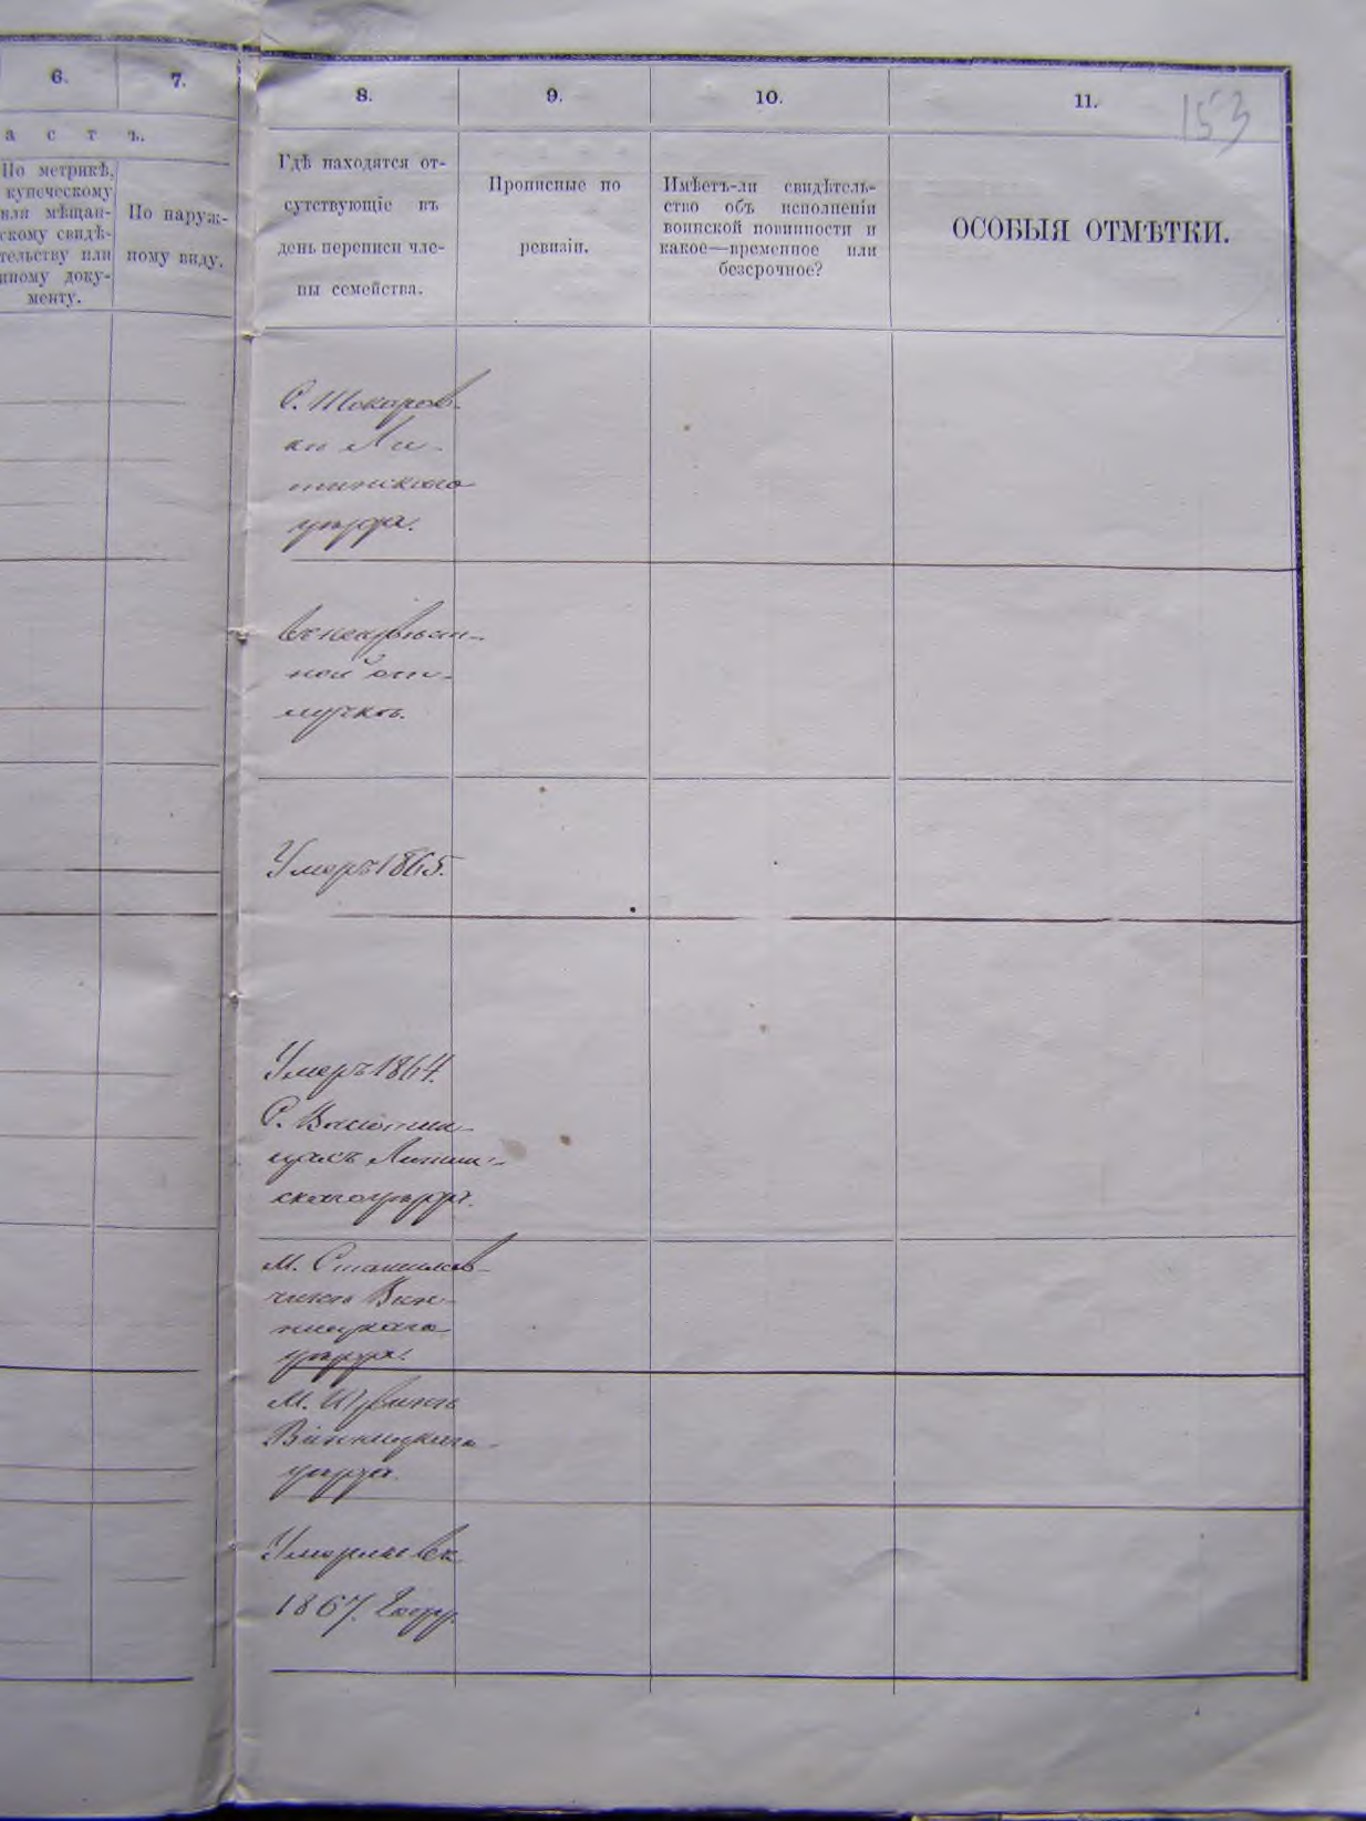 6.
7.
8.
9.
10.
11.
153
а с т ъ.
По метрикѣ,
купеческому
или мѣщан-
скому свидѣ-
тельству или
иному доку-
менту.
По наруж-
ному виду.
Гдѣ находятся от-
сутствующіе въ
день переписи чле-
ны семейства.
Прописные по
ревизіи.
Имѣетъ-ли свидѣтель-
ство объ исполненіи
воинской повинности и
какое—временное или
безсрочное?
ОСОБЫЯ ОТМѢТКИ.
С. Токаров-
ки Ли-
тинскаго
уѣзда.
Въ неизвѣст-
ной от-
лучкѣ.
Умеръ 1865.
Умеръ 1864.
С.
Литин-
скаго уѣзда.
М. Станислав-
чикѣ Вин-
ницкаго
уѣзда.
М.
Винницкаго
уѣзда.
Умерли въ
1867. году.